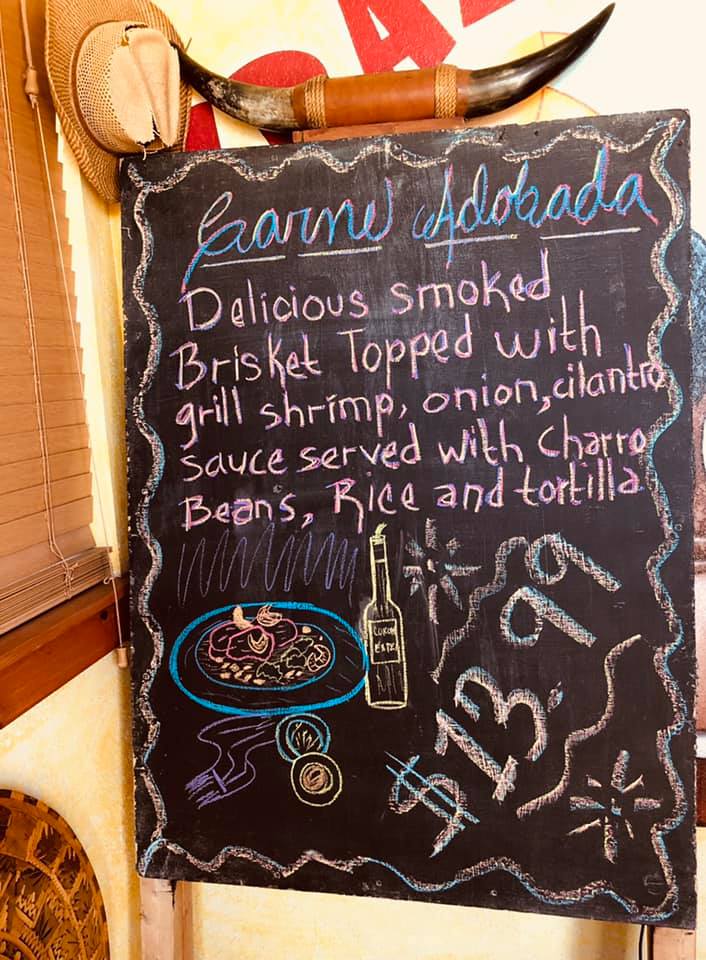 Carne Adobada
Delicious smoked
Brisket Topped with
grill shrimp, onion, cilantro
sauce served with Charro
Beans, Rice and tortilla
$13.99